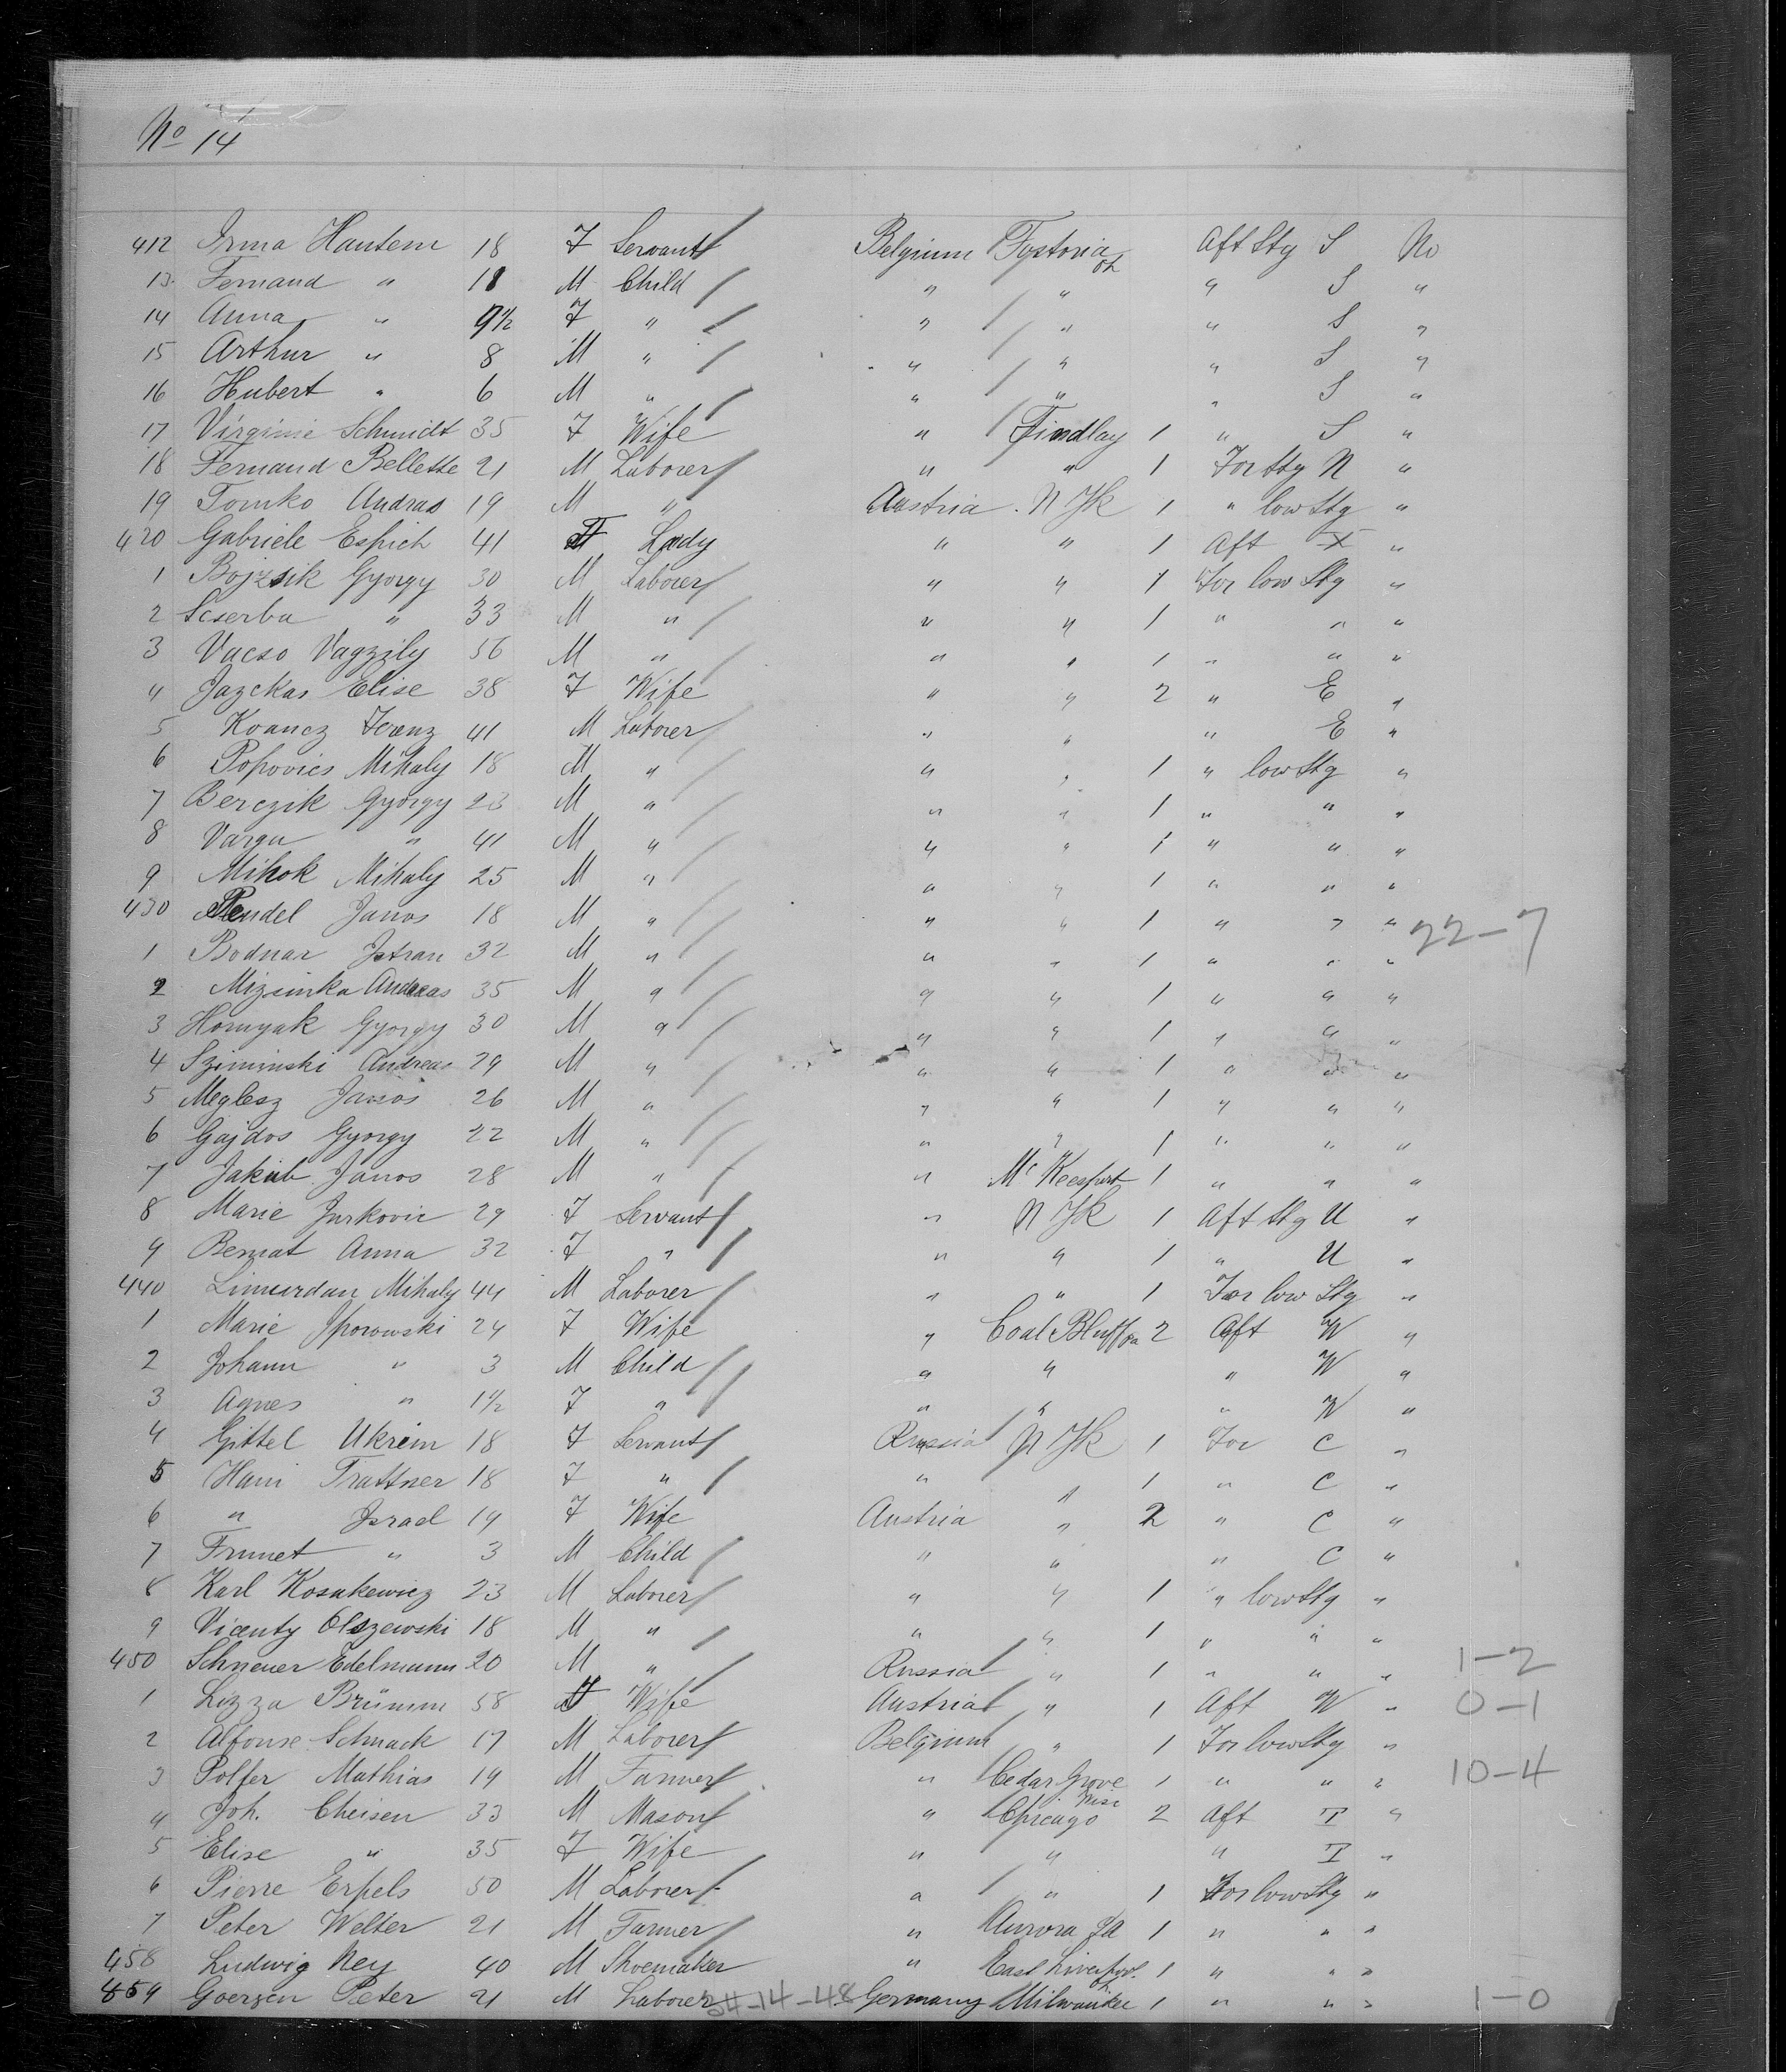 No 14
412 Irma Hautem 18 F Servant Belgium Fystoria Oh Aft Stg S No
13 Fernand " 11 M Child " " " S "
14 Anna " 9½ F " " " " S "
15 Arthur " 8 M " " " " S "
16 Hubert " 6 M " " " " S "
17 Virginie Schmidt 35 F Wife " Findlay 1 " S "
18 Fernand Bellette 21 M Laborer " " 1 For Stg N "
19 Tomko Andras 19 M " Austria N Yk 1 " low Stg "
420 Gabriele Espich 41 F Lady " " 1 Aft X "
1 Bojzsik Gyorgy 30 M Laborer " " 1 For low Stg "
2 Scserba " 33 M " " " 1 " " "
3 Vacso Vagzily 56 M " " " 1 " " "
4 Jazckas Elise 38 F Wife " " 2 " E "
5 Koancz Ferenz 41 M Laborer " " " E "
6 Popovics Mihaly 18 M " " " 1 " low Stg "
7 Berczik Gyorgy 23 M " " " 1 " " "
8 Varga " 41 M " " " 1 " " "
9 Mihok Mihaly 25 M " " " 1 " " "
430 Pendel Janos 18 M " " " 1 " " " 22-7
1 Bodnar Istvan 32 M " " " 1 " " "
2 Mizsinka Andreas 35 M " " " 1 " " "
3 Hornyak Gyorgy 30 M " " " 1 " " "
4 Sziminski Andreas 29 M " " " 1 " " "
5 Meglesz Janos 26 M " " " 1 " " "
6 Gajdos Gyorgy 22 M " " " 1 " " "
7 Jakub Janos 28 M " " Mc Keesport 1 " " "
8 Marie Jurkovic 29 F Servant " N Yk 1 Aft Stg U "
9 Bernat Anna 32 F " " " 1 " U "
440 Limurdan Mihaly 44 M Laborer " " 1 For low Stg "
1 Marie Sporowski 24 F Wife " Coal Bluff Pa 2 Aft W "
2 Johann " 3 M Child " " " W "
3 Agnes " 1½ F " " " " W "
4 Gittel Ukrein 18 F Servant Russia N Yk 1 For C "
5 Hani Trattner 18 F " " " 1 " C "
6 " Israel 19 F Wife Austria " 2 " C "
7 Frumet " 3 M Child " " " C "
8 Karl Kosakewicz 23 M Laborer " " 1 " low Stg "
9 Vicenty Olszewski 18 M " " " 1 " " "
450 Schneuer Edelmann 20 M " Russia " 1 " " " 1-2
1 Lizza Brümm 58 F Wife Austria " 1 Aft W " 0-1
2 Alfonse Schnack 17 M Laborer Belgium " 1 For low Stg "
3 Polfer Mathias 19 M Farmer " Cedar Grove Wisc 1 " " " 10-4
4 Joh. Cheisen 33 M Mason " Chicago 2 Aft T "
5 Elise " 35 F Wife " " " T "
6 Pierre Erpels 50 M Laborer " " 1 For low Stg "
7 Peter Welter 21 M Farmer " Aurora Ia 1 " " "
458 Ludwig Ney 40 M Shoemaker " East Liverpool Oh 1 " " "
459 Goerzen Peter 21 M Laborer 34-14-48 Germany Milwaukee 1 " " " 1-0